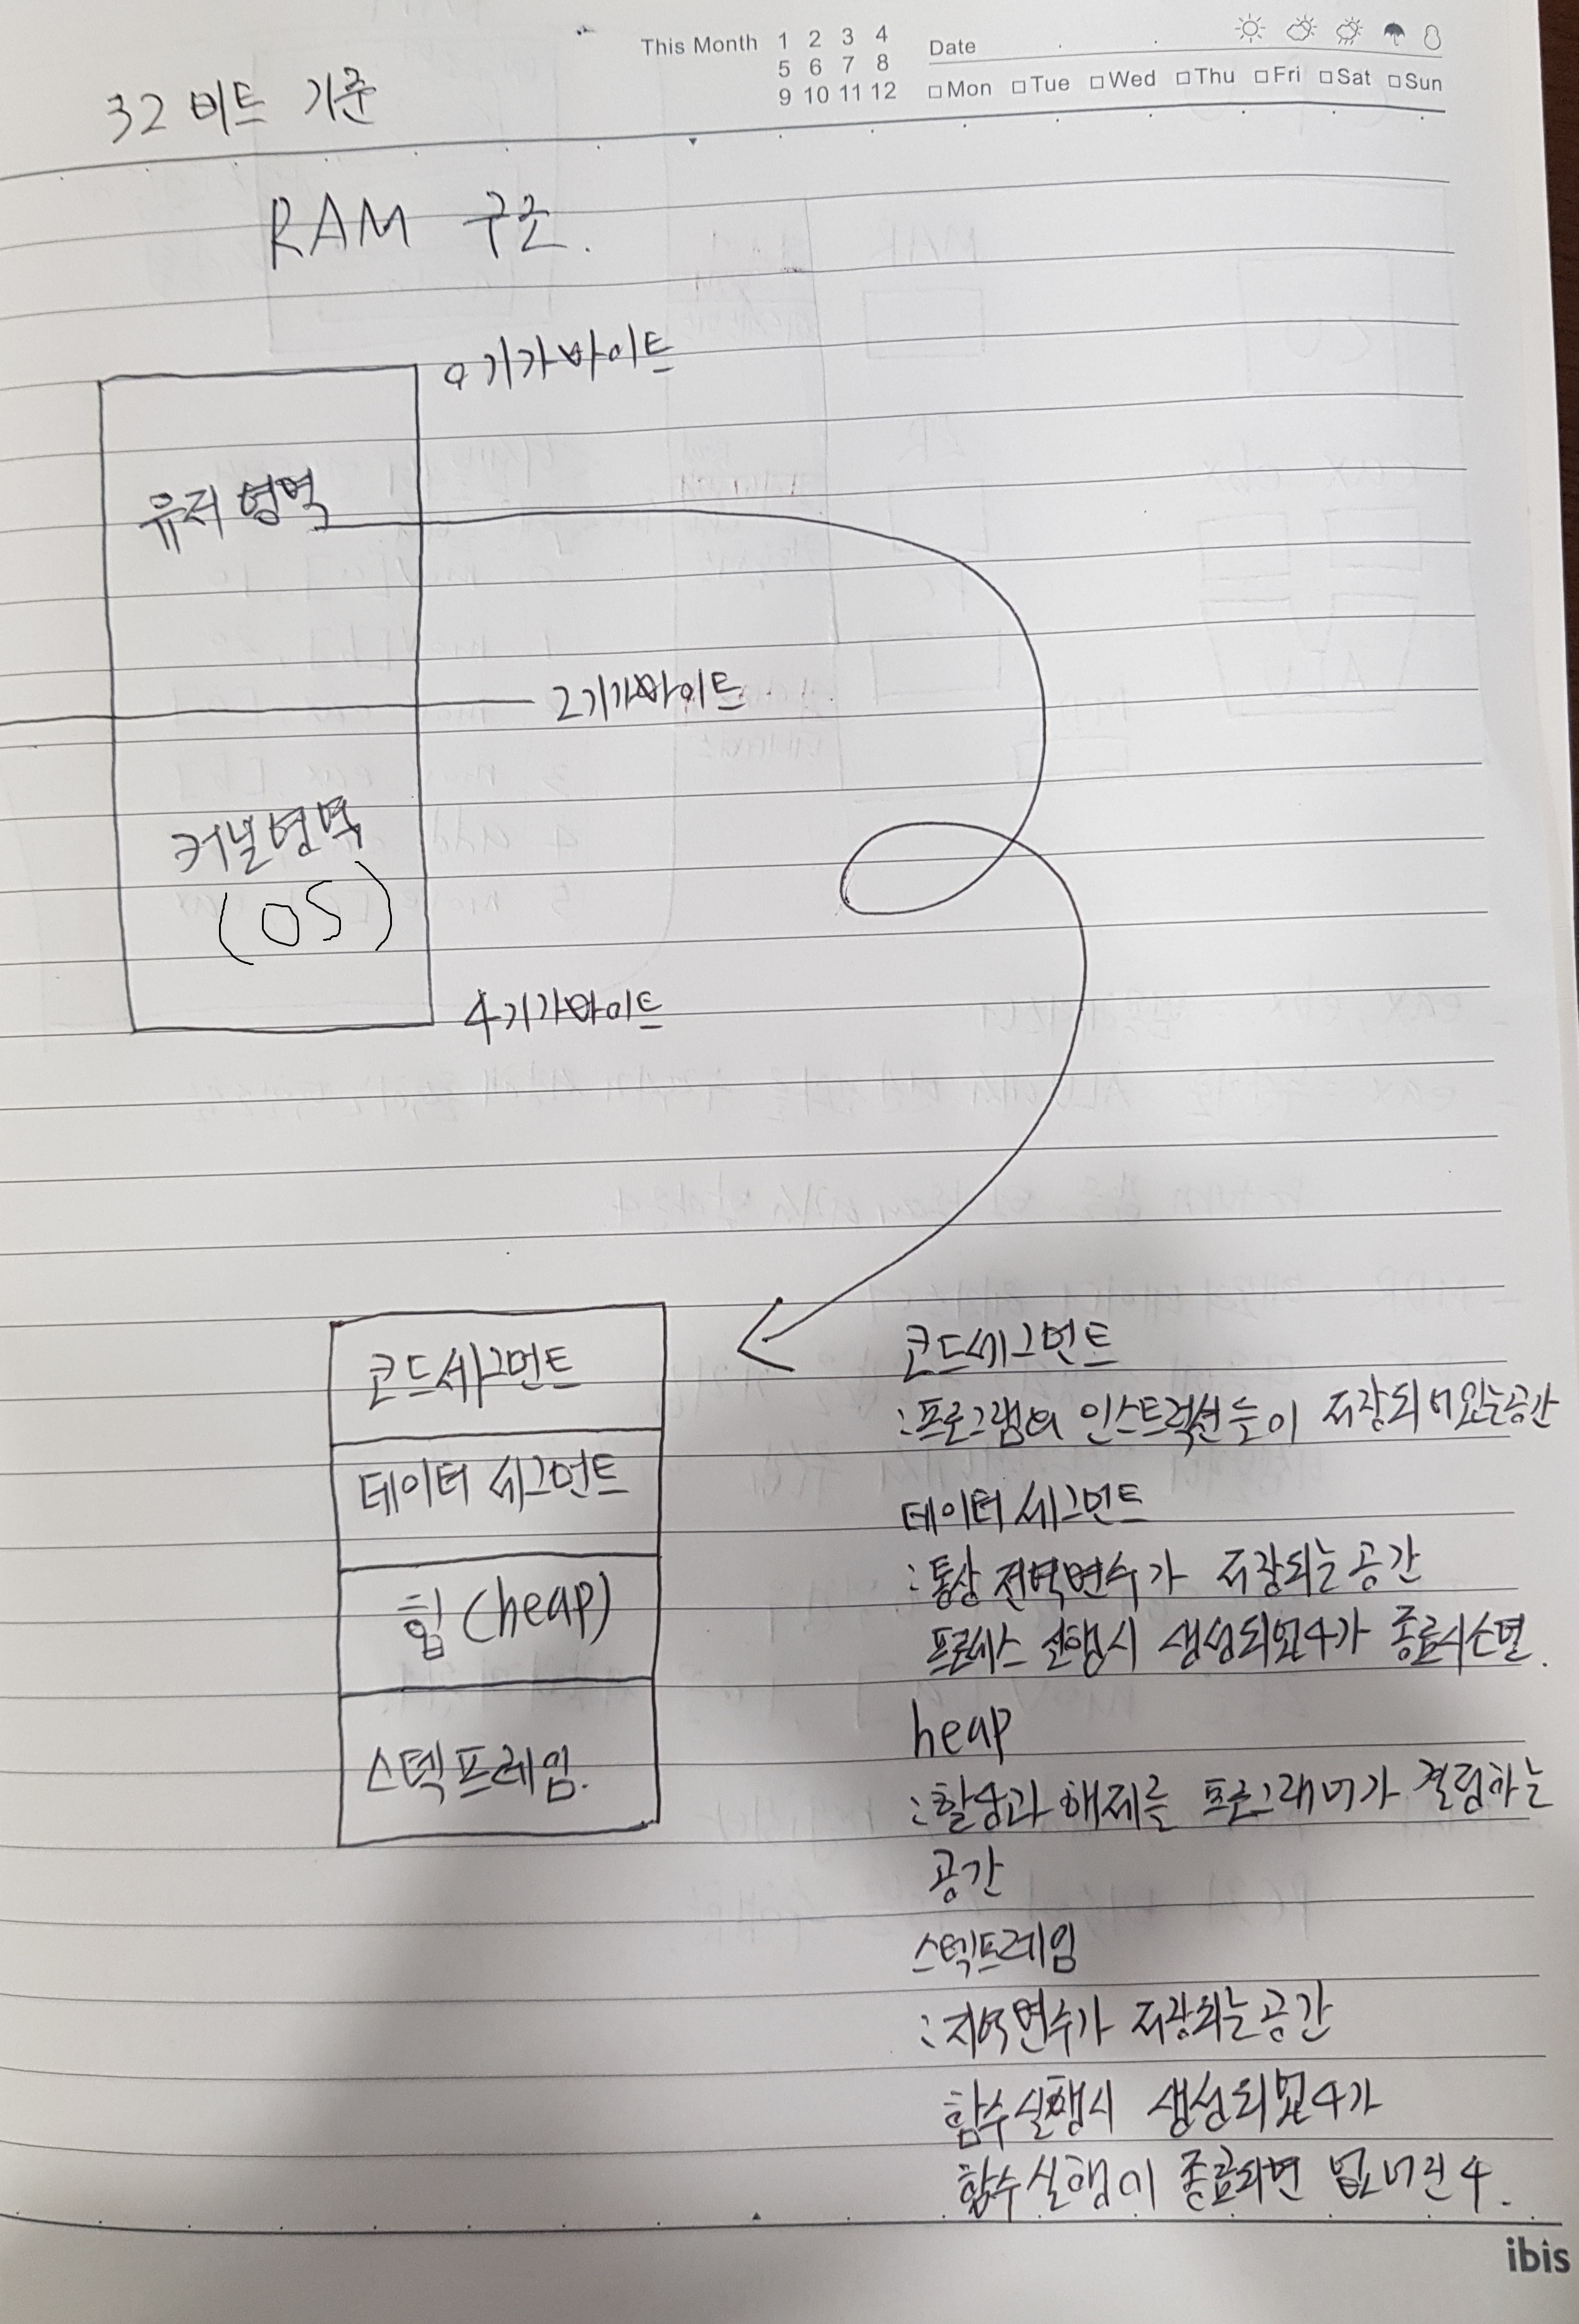 This Month 1 2 3 4
5 6 7 8
9 10 11 12
Date
Mon Tue Wed Thu Fri Sat Sun
32 비트 기준
RAM 구조.
0 기가바이트
유저 영역
2기가바이트
커널영역
(OS)
4기가바이트
코드세그먼트
데이터 세그먼트
힙 (heap)
스텍프레임.
코드세그먼트
:프로그램의 인스트럭션들이 저장되어있는공간
데이터 세그먼트
:통상 전역변수가 저장되는 공간
프로세스 실행시 생성되었다가 종료시소멸.
heap
:할당과 해제를 프로그래머가 결정하는
공간
스텍프레임
:지역변수가 저장되는공간
함수실행시 생성되었다가
함수실행이 종료되면 없어진다.
ibis